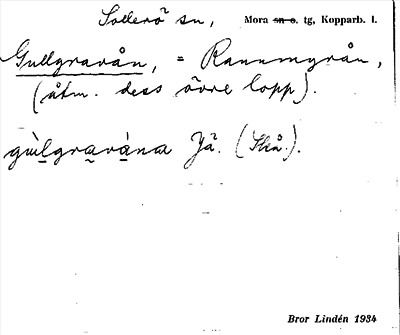 Sollerö sn, Mora sn o. tg, Kopparb. l.
Gullgravån, = Rannmyrån,
(åtm. dess övre lopp).
gulgravána Jä.
Bror Lindén 1934